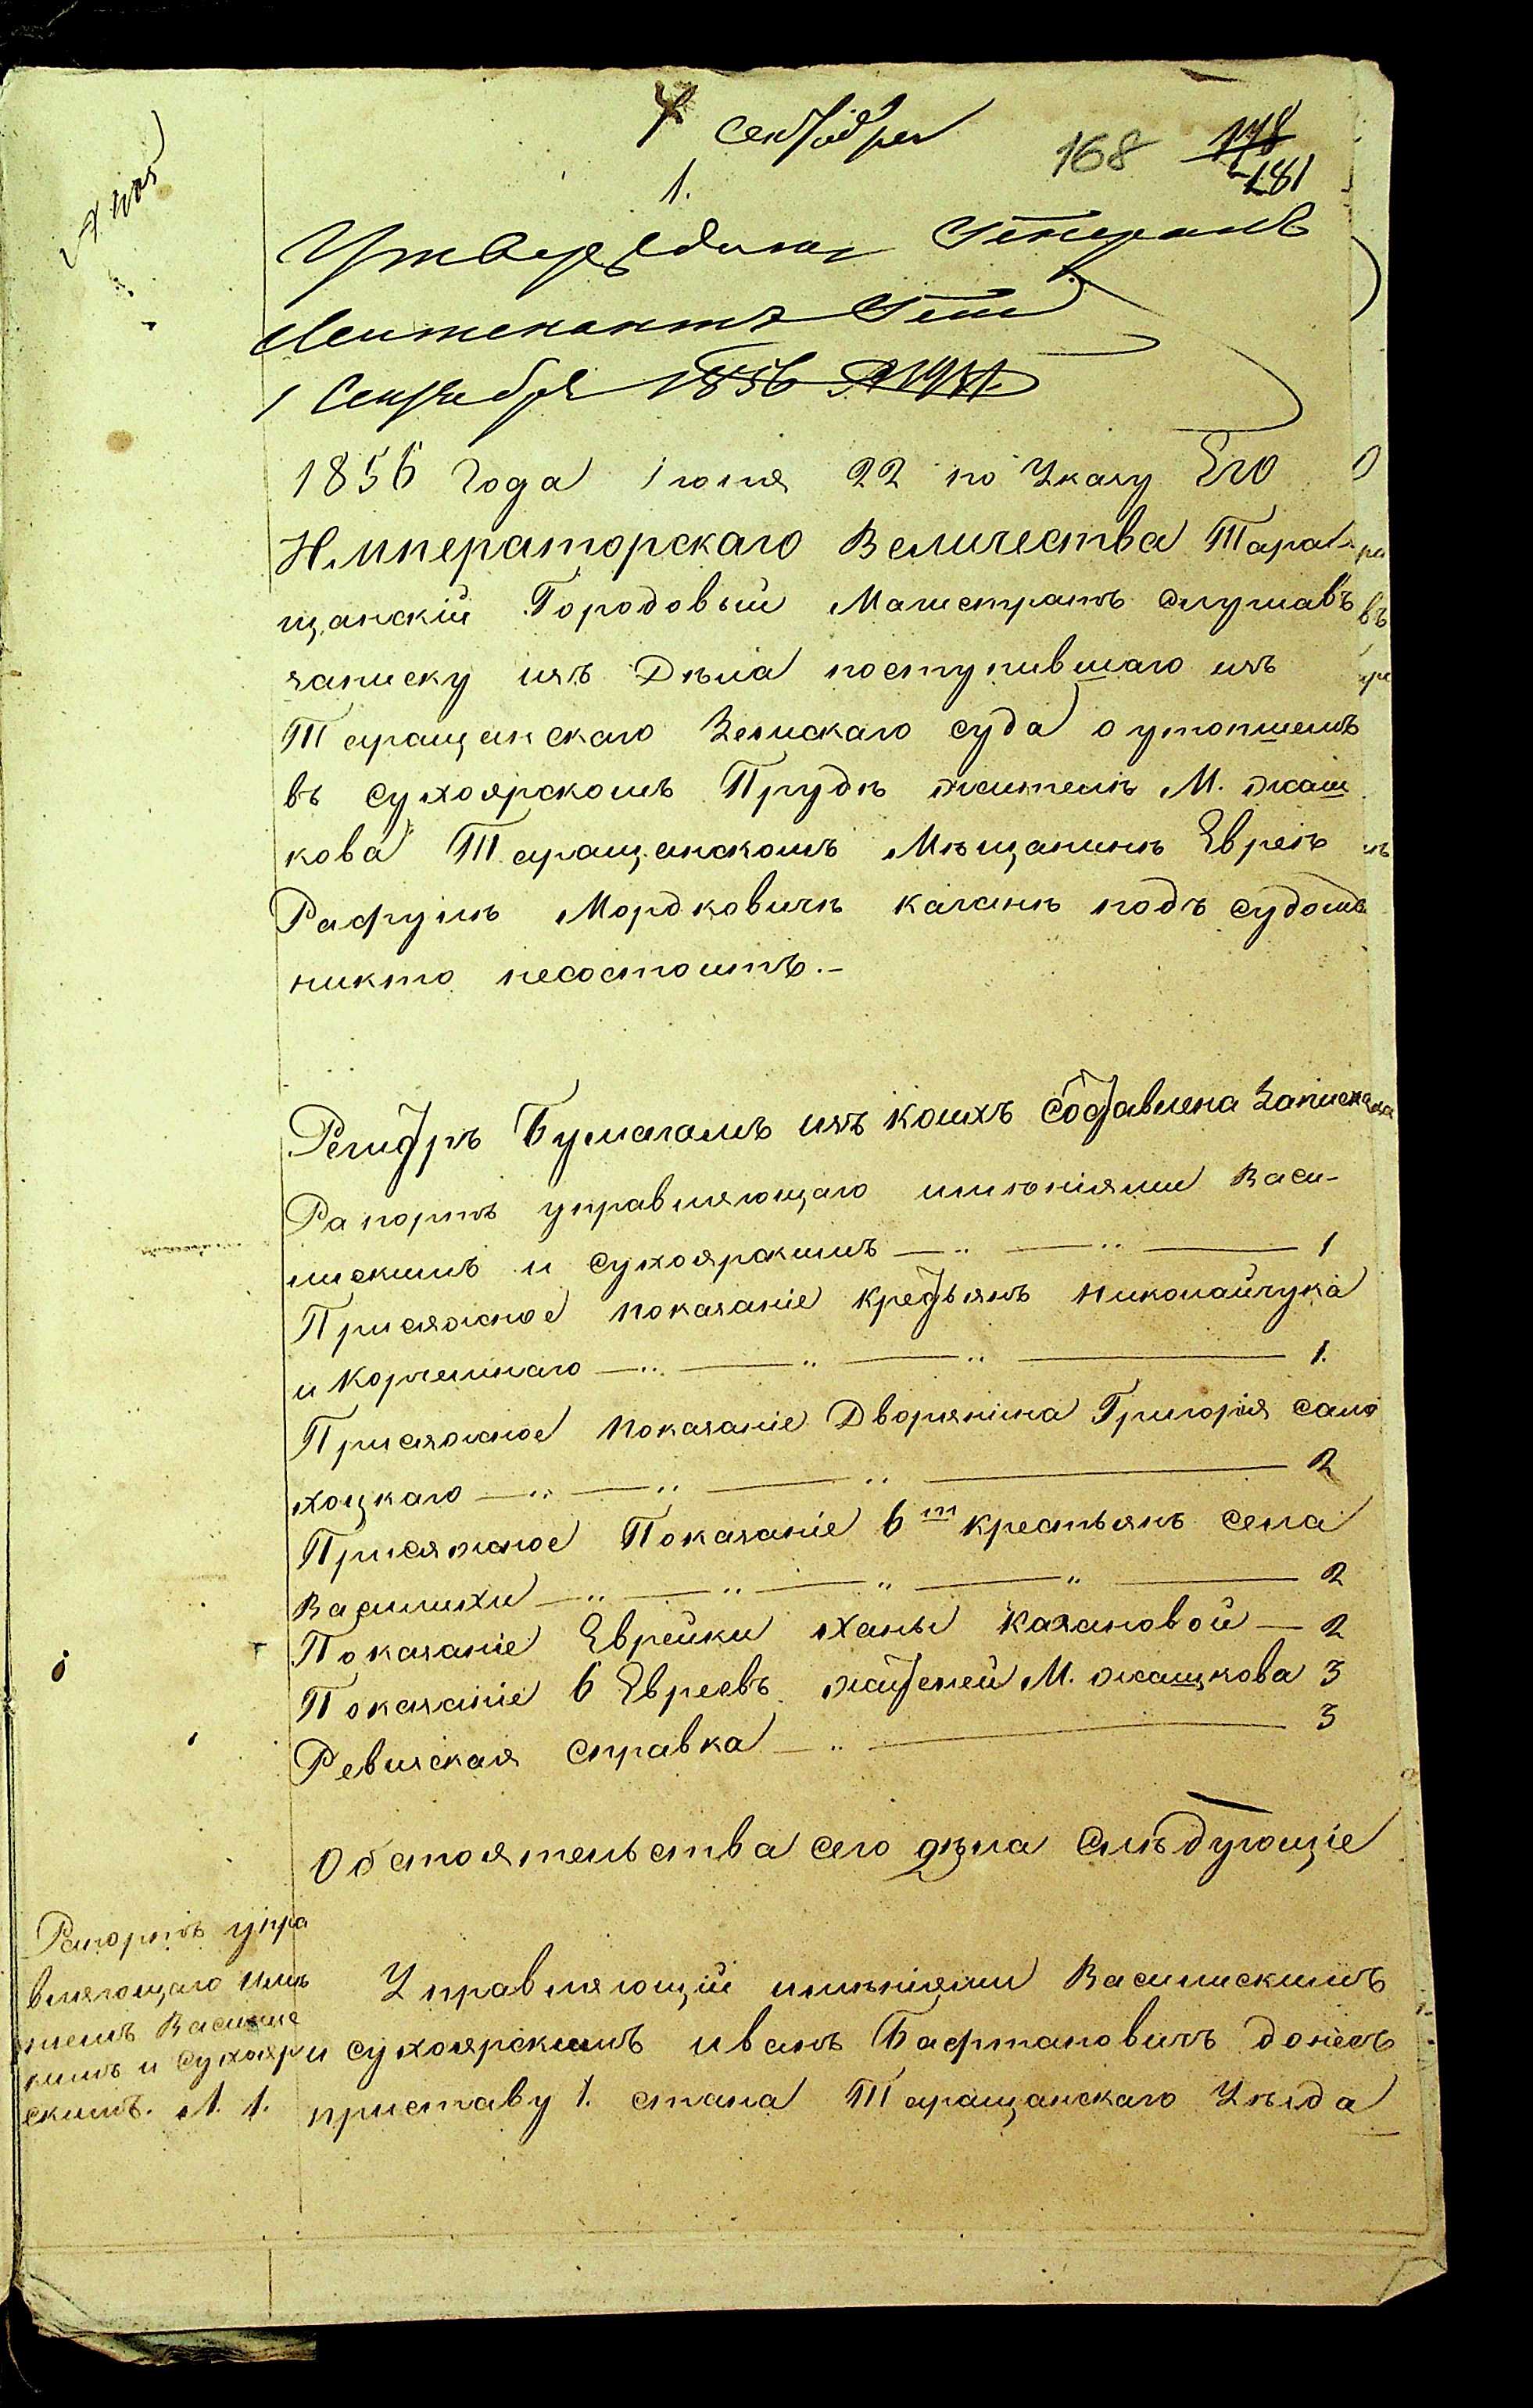 Сентября
168 178
181
1.
Утверждаю Генералъ
Лейтенантъ
1 Сентября 1856
1856 года Iюня 22 по Указу Его
Императорскаго Величества Тара-
щанскій Городовый Магистратъ слушавъ
записку изъ Дѣла поступившаго изъ
Таращанскаго Земскаго суда о утопшемъ
въ сухоярскомъ Прудѣ жителѣ М. жаш
кова Таращанскомъ Мѣщанинѣ Евреѣ
Рафулѣ Мордковичѣ каганѣ подъ судомъ
никто несостоитъ.-
Регистръ Бумагамъ изъ коихъ составлена Записка
Рапортъ управляющаго имѣніями Васи-
лискимъ и Сухоярскимъ — 1
Присяжное показаніе крестьянъ Николайчука
и Корчемнаго — 1.
Присяжное показаніе Дворянина Григорія само
хоцкаго — 2
Присяжное Показаніе 6т крестьянъ села
Василихи — 2
Показаніе Еврейки Ханы Казановой — 2
Показаніе 6 Евреевъ жителей М. жашкова 3
Ревизская справка — 3
Обстоятельства сего дѣла слѣдующіе
Рапортъ упра
вляющаго имѣ
ніемъ Василис
кимъ и Сухояр
скимъ. Л. 1.
Управляющій имѣніями Василискимъ
и сухоярскимъ иванъ Бафтановичъ донесъ
приставу 1. стана Таращанскаго Уѣзда